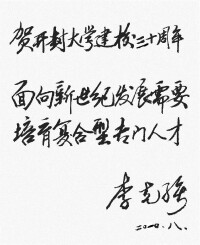 贺开封大学建校二十周年
面向新世纪发展需要
培育复合型专门人才
李克强
二〇〇〇.八.